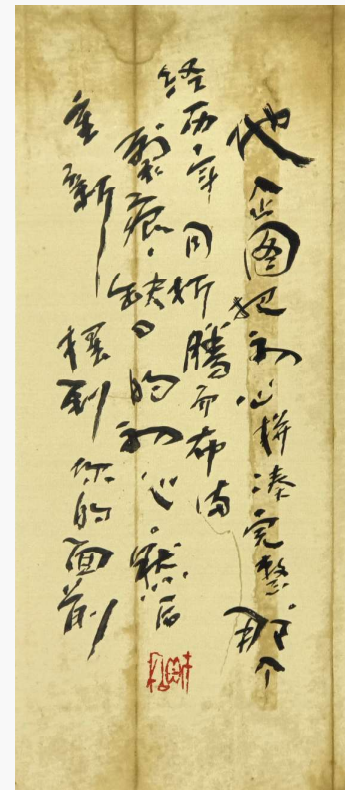 他企图把初心拼凑完整 那个
经历年月折腾而布满
裂痕·缺口的初心。然后
重新 摆到你的面前